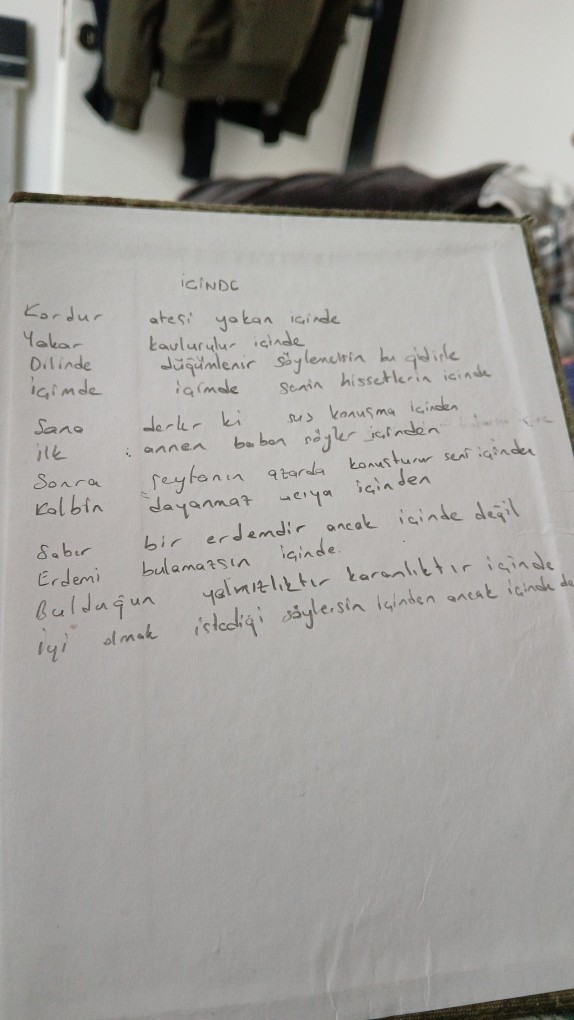 İÇİNDE
Kordur ateşi yakan içinde
Yakar kavlurulur içinde
Dilinde düğümlenir söylenelsin bu gidişle
içimde içimde senin hissetlerin içinde
Sana derler ki sus konuşma içinden
ilk annen baban söyler içinden
Sonra şeytanın azarda konuşturur seni içinden
Kalbin dayanmaz acıya içinden
Sabır bir erdemdir ancak içinde değil
Erdemi bulamazsın içinde.
Bulduğun yalnızlıktır karanlıktır içinde
iyi olmak istediği söylersin içinden ancak içinde de